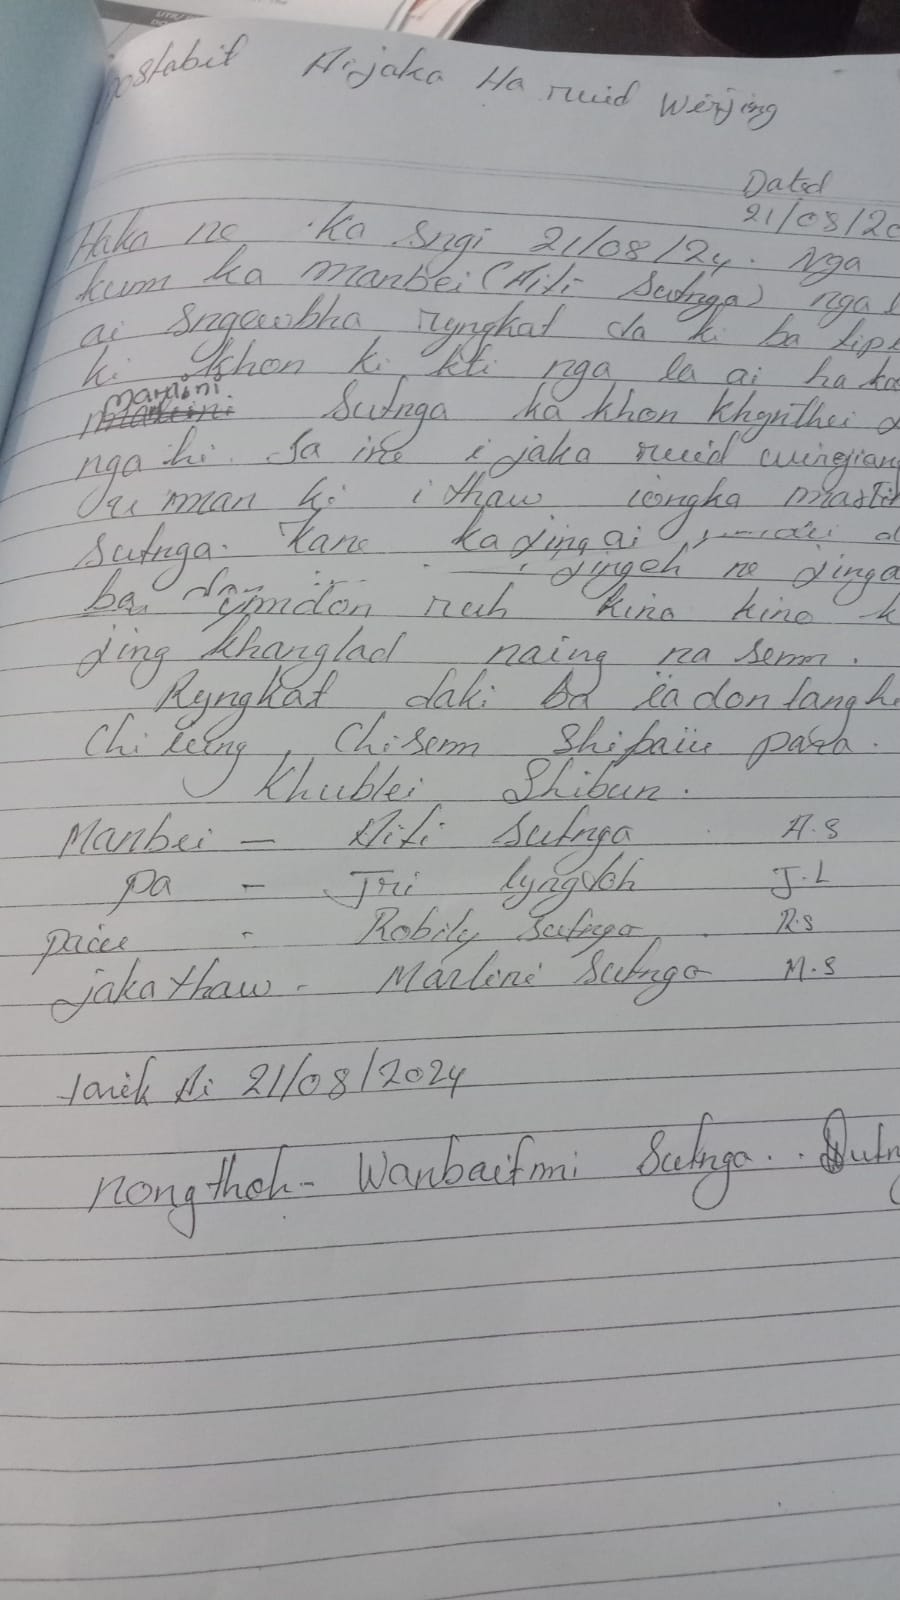 Aijaka Ha ruid Werjing
Dated
21/08/20
Haka ne ka sngi 21/08/24. Nga
kum ka manbei (Aiti Sutnga) nga
ai sngewbha ryngkat da ki ba
ki khon ki kti nga la ai ha ka
marlini
Sutnga ka khon khynthei
nga hi. Ia ine i jaka ruid wingjang
man ki i thaw iongka
Sutnga. Kane kajingai
jingeh ne jinga
ba don ruh kino kino k
jing khanglad naing na semn.
Ryngkat daki ba ïadon lang h
Chi ieng, Chisemn Shipaiu para.
Khublei Shibun.
Manbei - Aiti Sutnga A.S
pa - Jri lyngdoh J.L
paiu - Robily Sutnga R.S
jakathaw - Marlini Sutnga M.S
tarik ki 21/08/2024
nongthoh - Wanbaitmi Sutnga.. Sutn